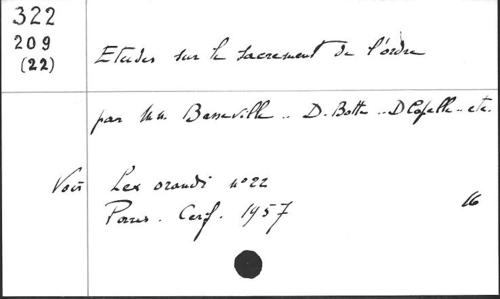 322
209
(22)
Etudes sur le sacrement de l'ordre
par MM. Basseville .. D. Botte .. D Capelle .. etc.
Voir Lex orandi n°22
Paris. Cerf. 1957
16